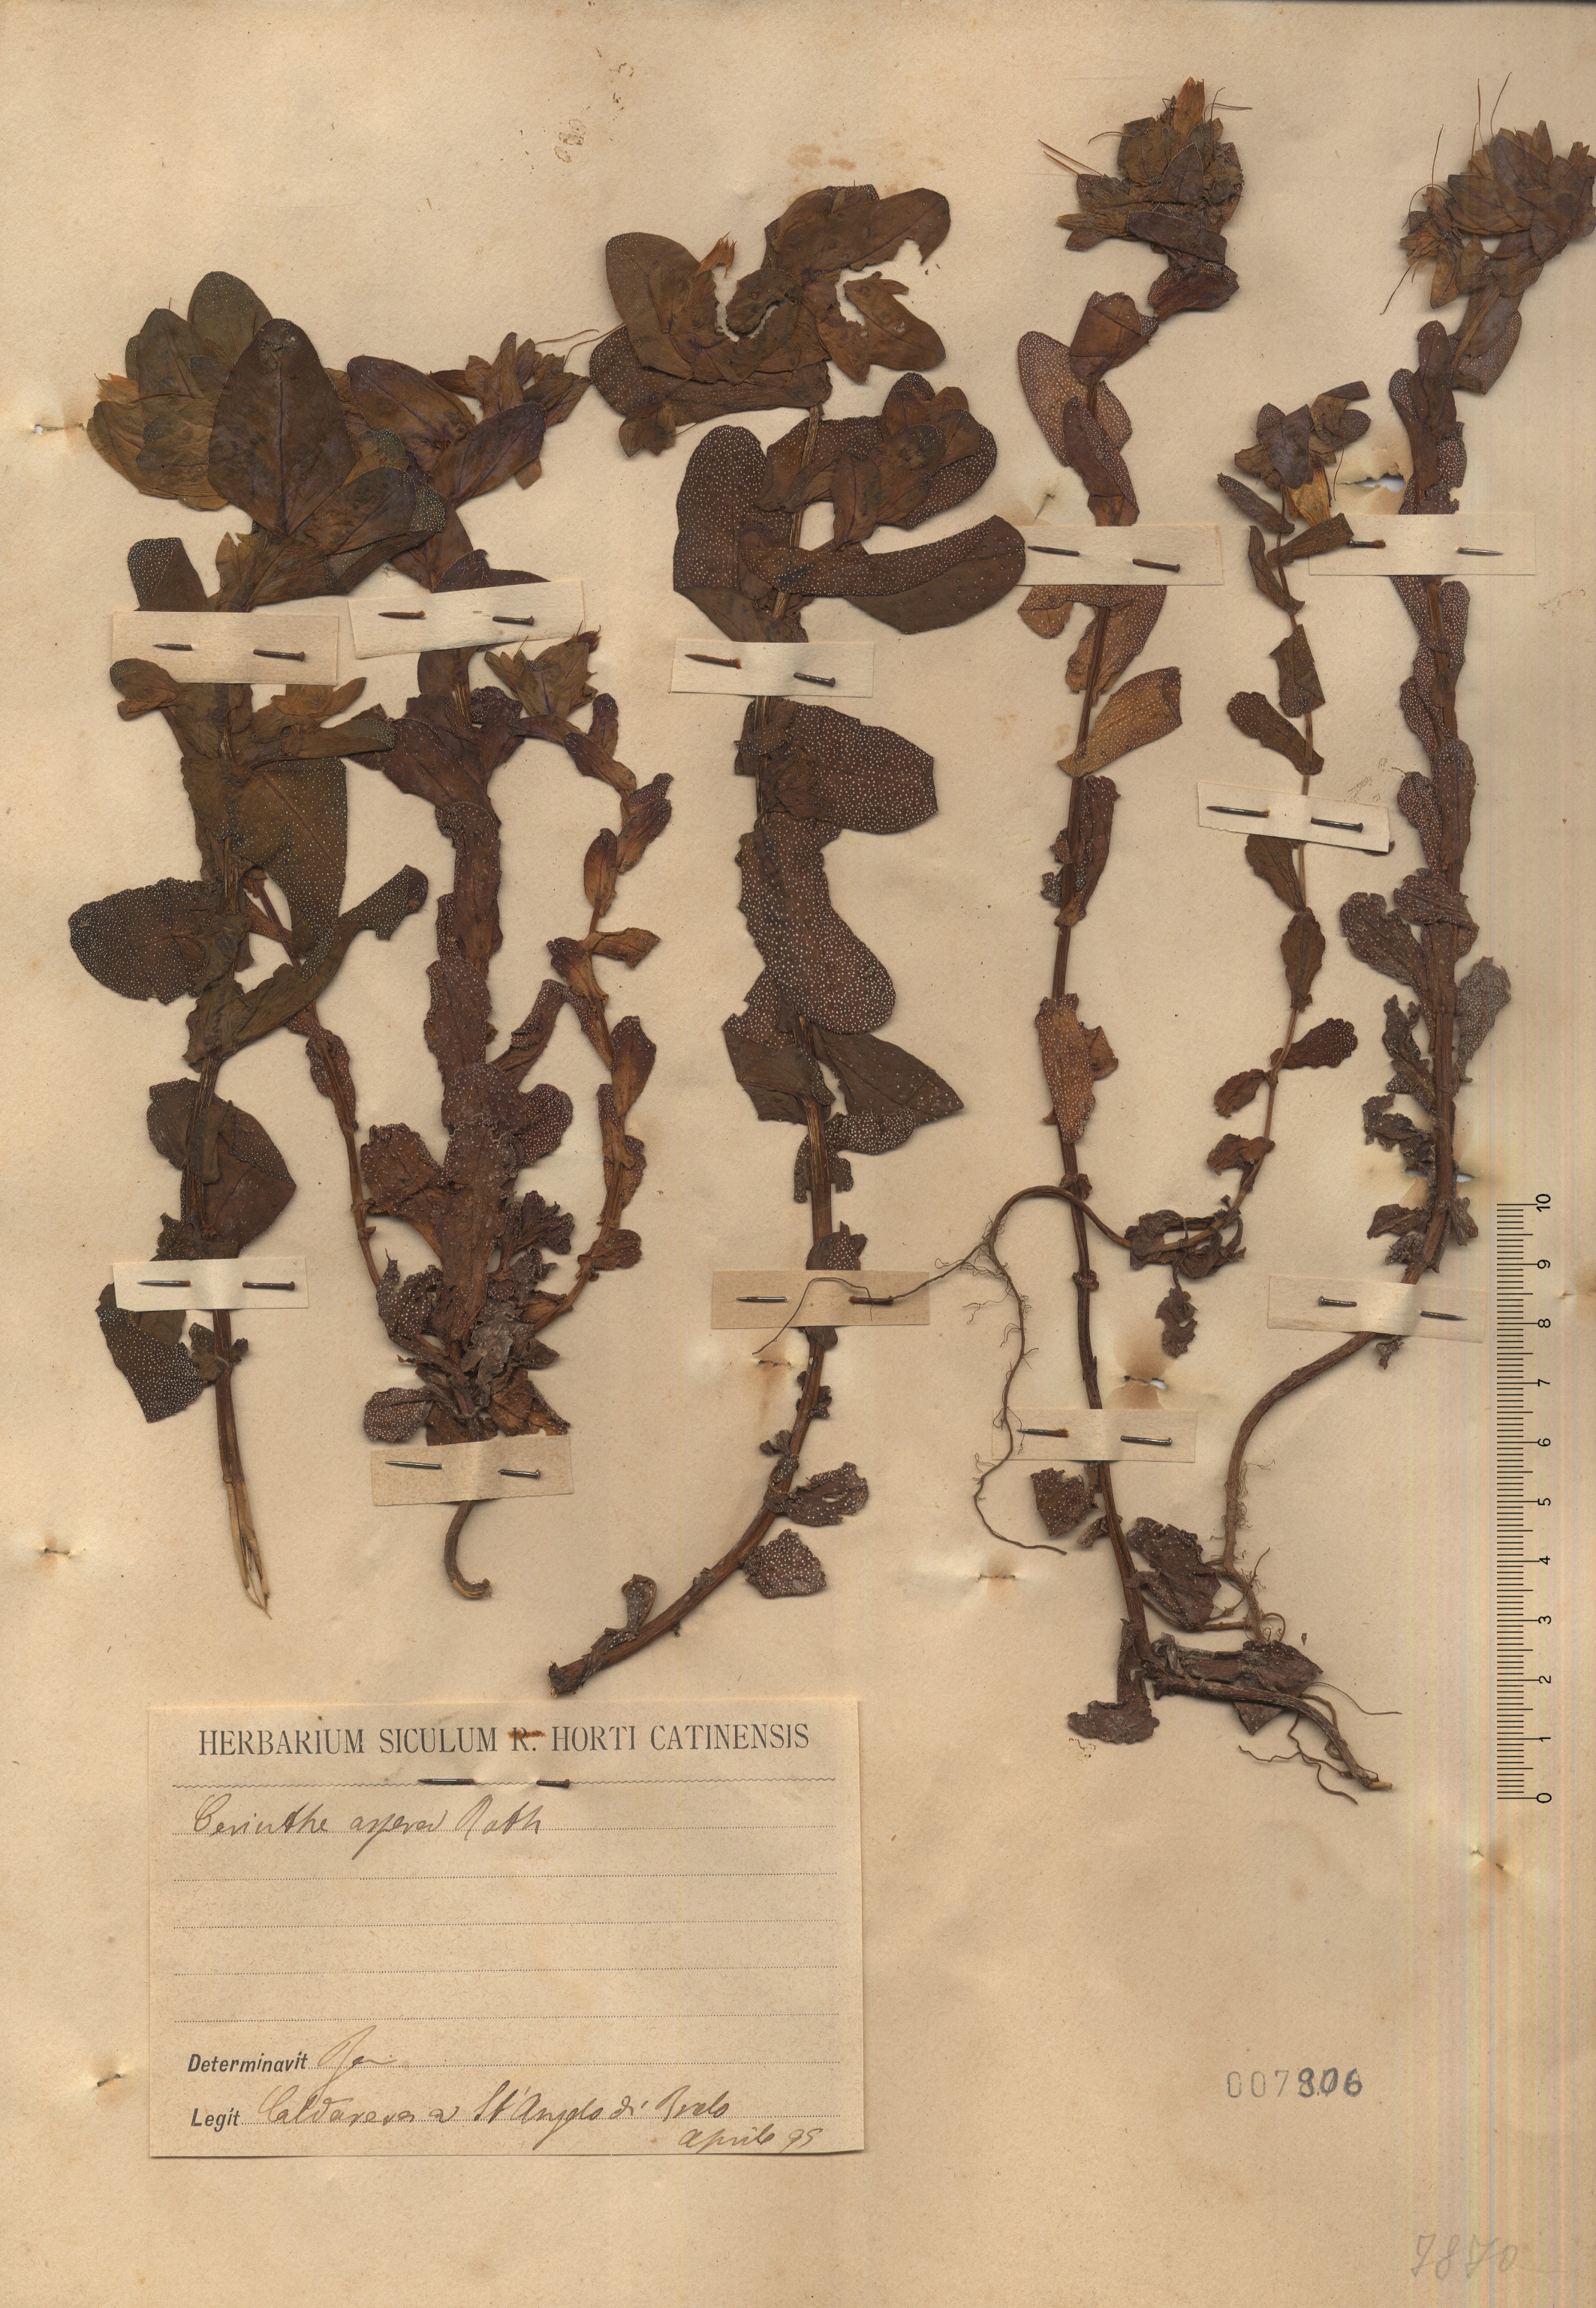 10
9
8
7
6
5
4
3
2
1
0
HERBARIUM SICULUM R. HORTI CATINENSIS
Cerinthe aspera Roth
Determinavit
Legit Caldarera a St Angelo di Brolo
Aprile 95
007806
7870